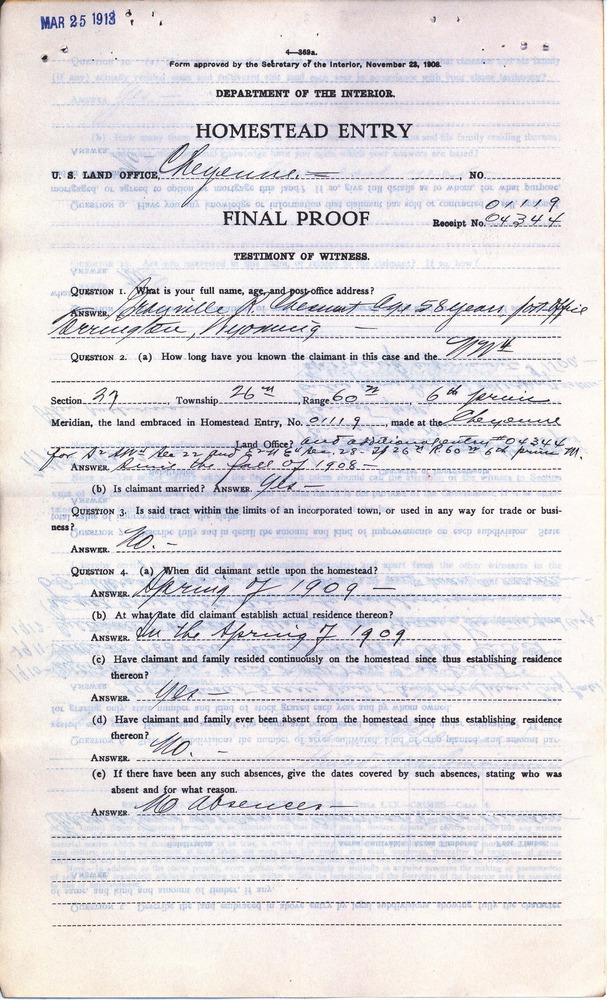 MAR 25 1913
4—369a.
Form approved by the Secretary of the Interior, November 23, 1908.
DEPARTMENT OF THE INTERIOR.
HOMESTEAD ENTRY
U. S. LAND OFFICE, Cheyenne. — , NO.
01119
FINAL PROOF Receipt No. 04344
TESTIMONY OF WITNESS.
QUESTION 1. What is your full name, age, and post-office address?
ANSWER. R. Age 58 years, post Office
Torrington, Wyoming —
QUESTION 2. (a) How long have you known the claimant in this case and the NW4
Section 27, Township 26 n, Range 60 W, 6th prin
Meridian, the land embraced in Homestead Entry, No. 01119, made at the Cheyenne
Land Office? and additional entry # 04344
for Sec 22 and Sec. 28. Tp 26 n R. 60 W 6th prin M.
ANSWER. Since the fall of 1908 —
(b) Is claimant married? ANSWER. Yes —
QUESTION 3. Is said tract within the limits of an incorporated town, or used in any way for trade or busi-
ness?
ANSWER. No. —
QUESTION 4. (a) When did claimant settle upon the homestead?
ANSWER. Spring of 1909 —
(b) At what date did claimant establish actual residence thereon?
ANSWER. In the Spring of 1909
(c) Have claimant and family resided continuously on the homestead since thus establishing residence
thereon?
ANSWER. Yes —
(d) Have claimant and family ever been absent from the homestead since thus establishing residence
thereon?
ANSWER. No. —
(e) If there have been any such absences, give the dates covered by such absences, stating who was
absent and for what reason.
ANSWER. No absences —